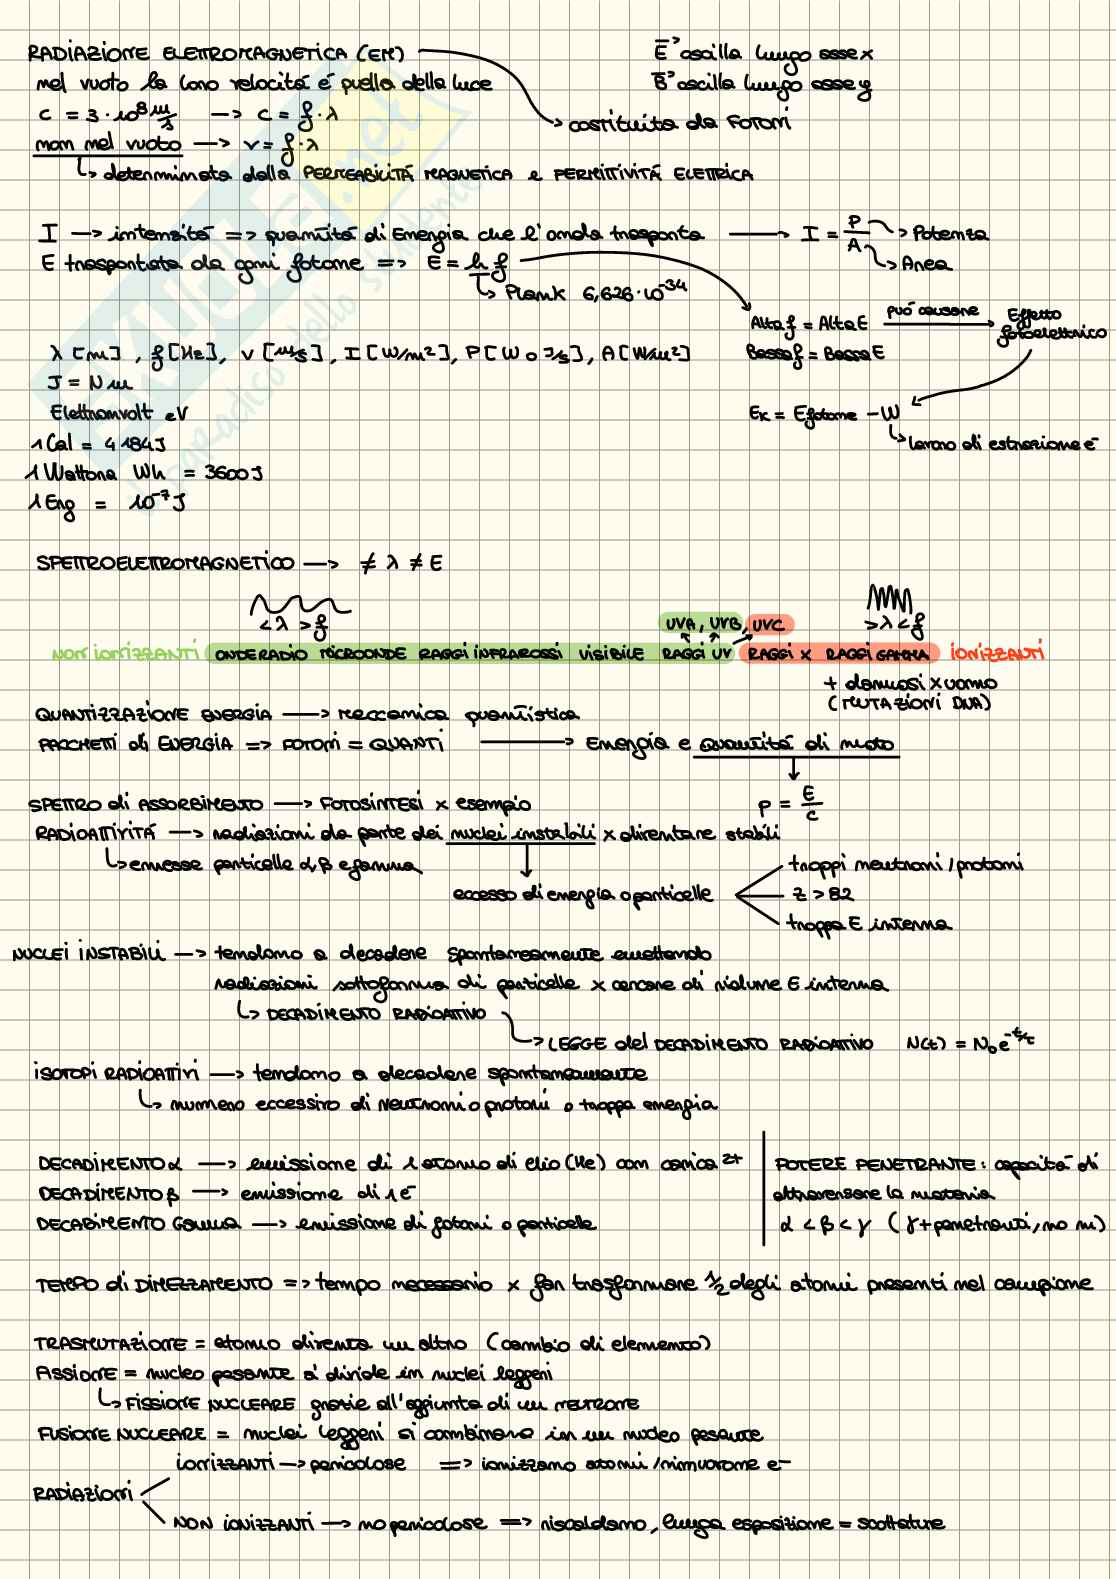 RADIAZIONE ELETTROMAGNETICA (EM)
E oscilla lungo asse x
nel vuoto la loro velocità è quella della luce
B oscilla lungo asse y
c = 3 · 10⁸ m/s → c = f · λ
→ costituita da FOTONI
non nel vuoto → v = f · λ
↳ determinata dalla PERMEABILITÀ MAGNETICA e PERMITTIVITÀ ELETTRICA
I → intensità => quantità di Energia che l'onda trasporta → I = P/A → Potenza
→ Area
E trasportata da ogni fotone => E = h f
↳ Plank 6,626·10⁻³⁴
Alta f = Alta E può causare Effetto fotoelettrico
Bassa f = Bassa E
λ [m], f [Hz], v [m/s], I [W/m²], P [W o J/s], A [W/m²]
J = N m
Elettronvolt eV
Ek = Efotone - W
↳ lavoro di estrazione e⁻
1 Cal = 4184J
1 Wattora Wh = 3600J
1 Erg = 10⁻⁷J
SPETTROELETTROMAGNETICO → ≠ λ ≠ E
< λ > f
UVA, UVB, UVC
> λ < f
NON IONIZZANTI ONDE RADIO MICROONDE RAGGI INFRAROSSI VISIBILE RAGGI UV RAGGI X RAGGI GAMMA IONIZZANTI
+ dannosi x uomo
(MUTAZIONI DNA)
QUANTIZZAZIONE ENERGIA → meccanica quantistica
PACCHETTI di ENERGIA => FOTONI = QUANTI → Energia e quantità di moto
p = E/c
SPETTRO di ASSORBIMENTO → FOTOSINTESI x esempio
RADIOATTIVITÀ → radiazioni da parte dei nuclei instabili x diventare stabili
↳ emesse particelle α, β e gamma
eccesso di energia o particelle
troppi neutroni / protoni
Z > 82
troppa E interna
NUCLEI INSTABILI → tendono a decadere spontaneamente emettendo
radiazioni sottoforma di particelle x cercare di ridurre E interna
↳ DECADIMENTO RADIOATTIVO
→ LEGGE del DECADIMENTO RADIOATTIVO N(t) = N₀e^-t/τ
ISOTOPI RADIOATTIVI → tendono a decadere spontaneamente
↳ numero eccessivo di neutroni o protoni o troppa energia
DECADIMENTO α → emissione di 1 atomo di elio (He) con carica 2+
DECADIMENTO β → emissione di 1 e⁻
DECADIMENTO Gamma → emissione di fotoni o particelle
POTERE PENETRANTE: capacità di
attraversare la materia
α < β < γ (γ + penetranti, no m)
TEMPO di DIMEZZAMENTO => tempo necessario x far trasformare 1/2 degli atomi presenti nel campione
TRASMUTAZIONE = atomo diventa un altro (cambio di elemento)
FISSIONE = nucleo pesante si divide in nuclei leggeri
↳ FISSIONE NUCLEARE grazie all'aggiunta di un NEUTRONE
FUSIONE NUCLEARE = nuclei leggeri si combinano in un nucleo pesante
IONIZZANTI → pericolose => ionizzano atomi / rimuovono e⁻
RADIAZIONI
NON IONIZZANTI → no pericolose => riscaldano, lunga esposizione = scottature